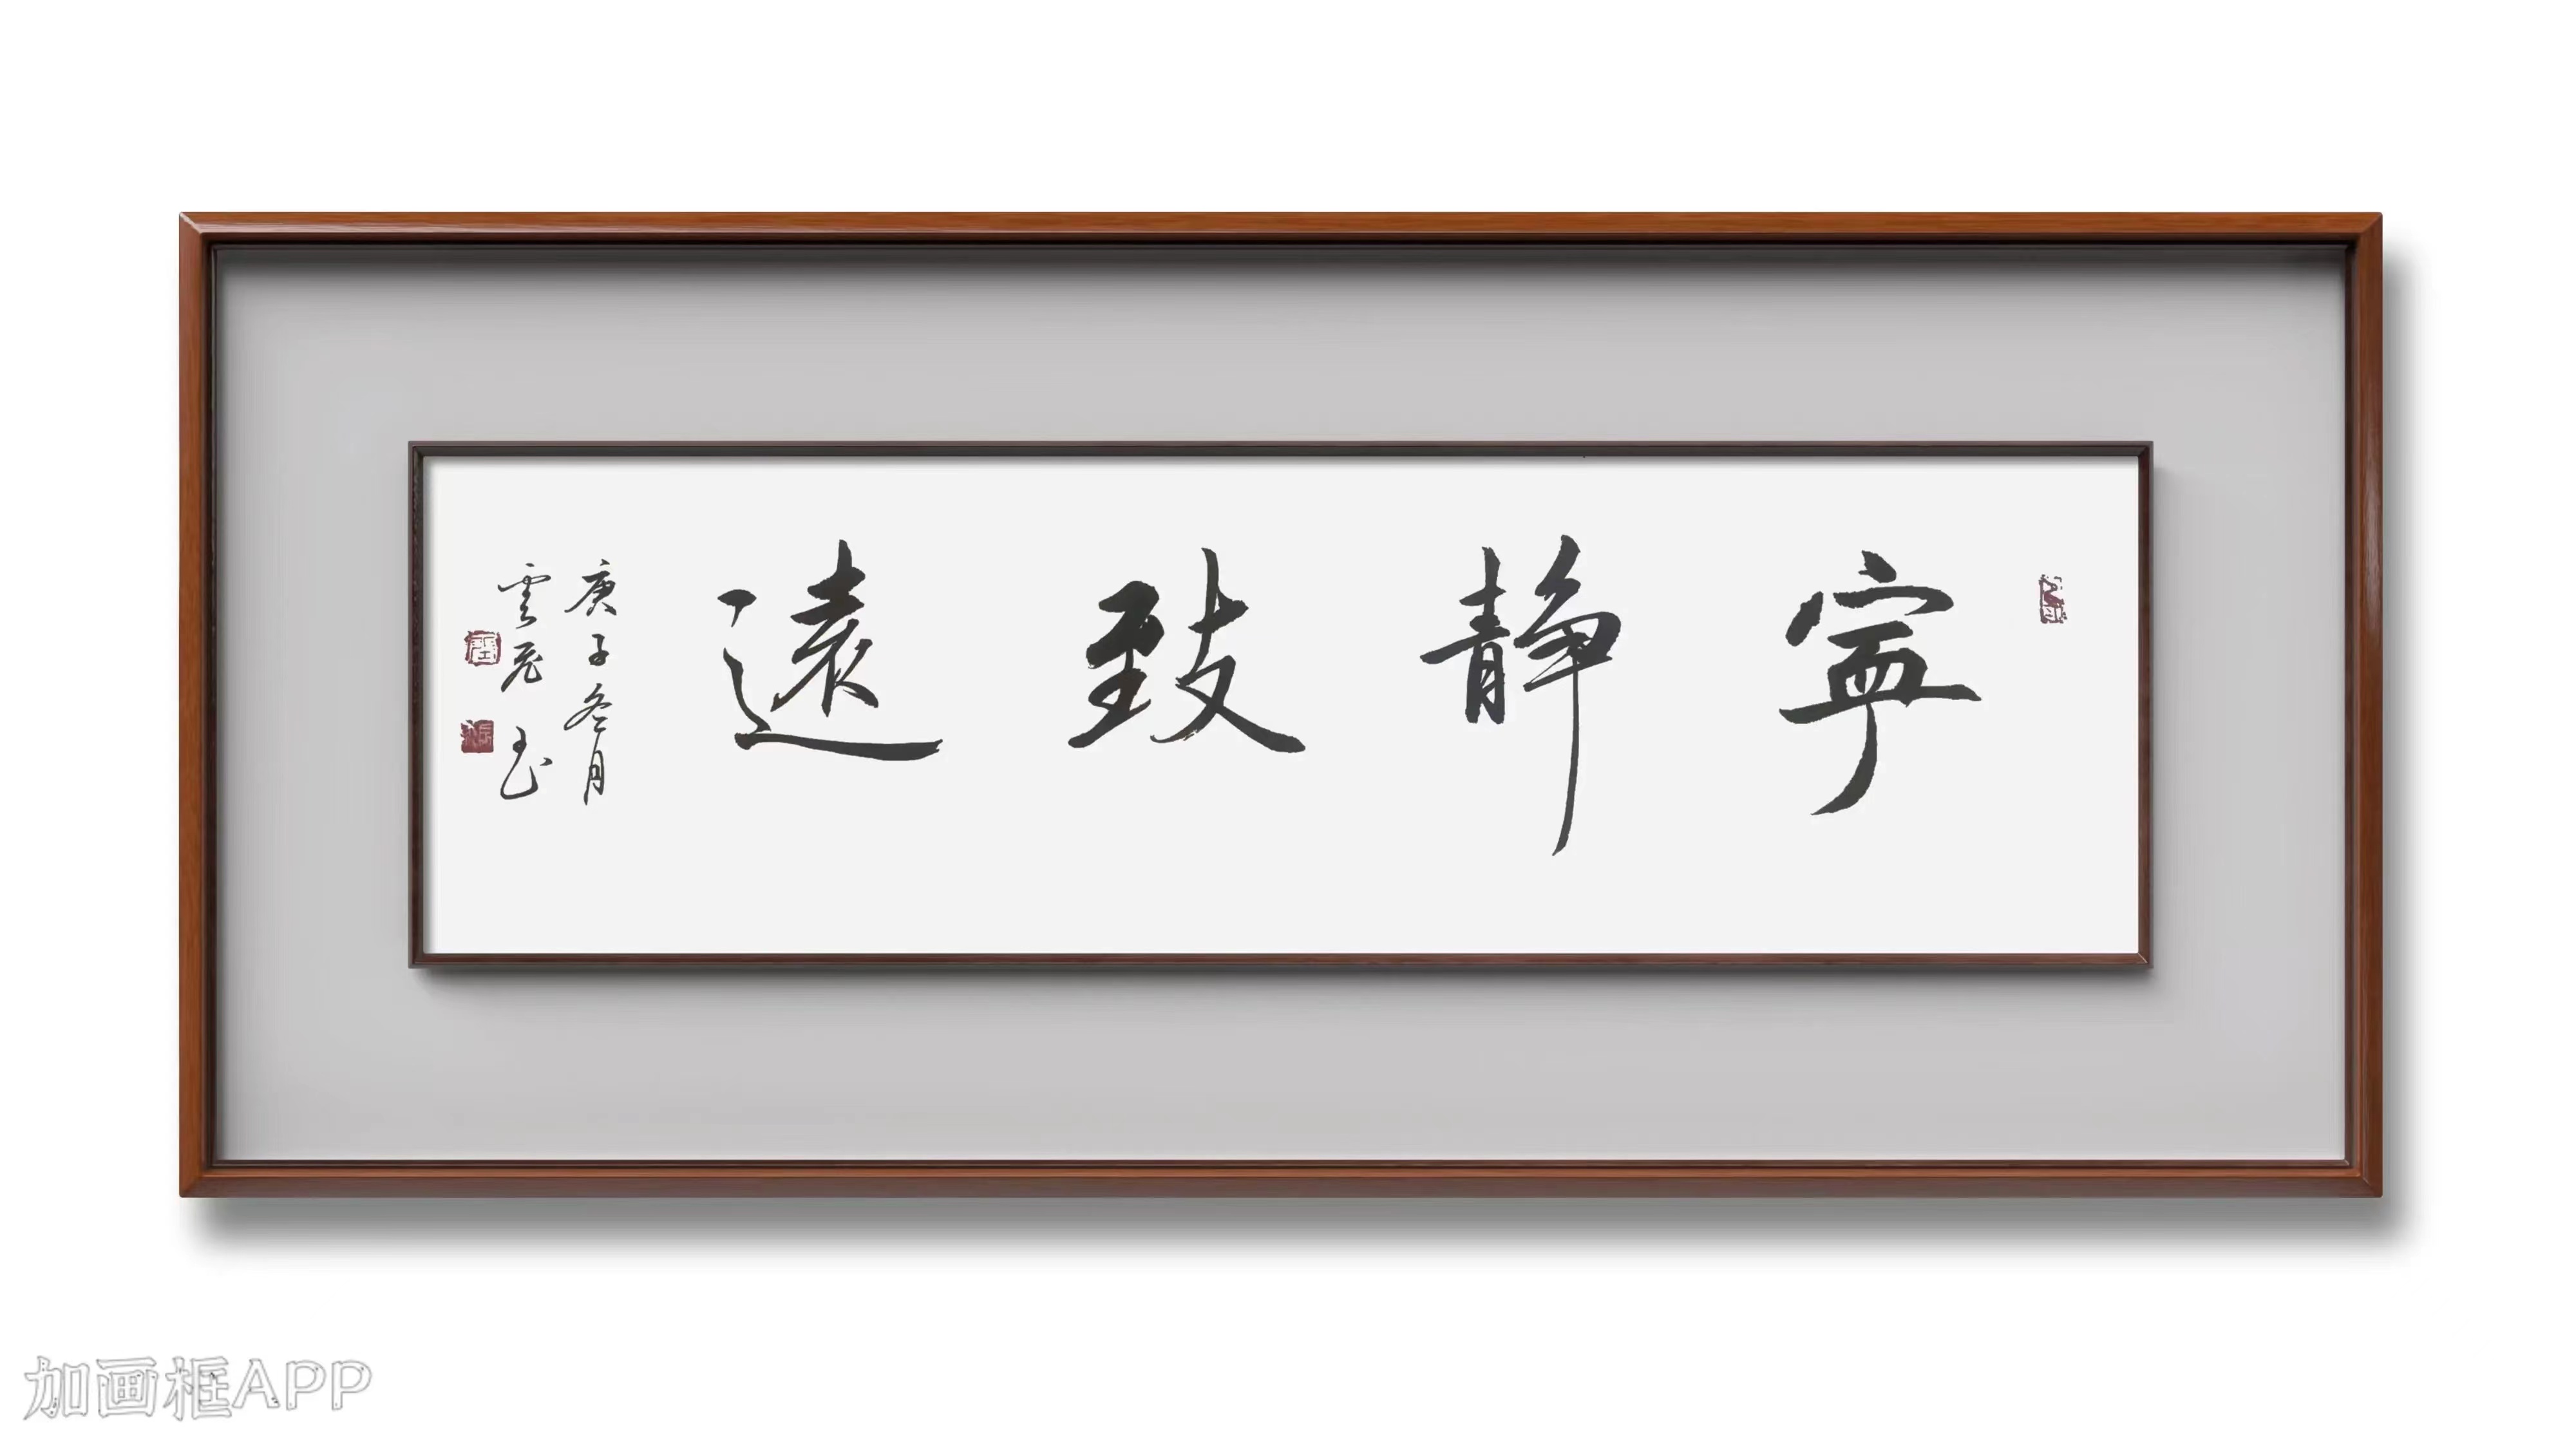 寧静致遠
庚子冬月
雲
加画框APP